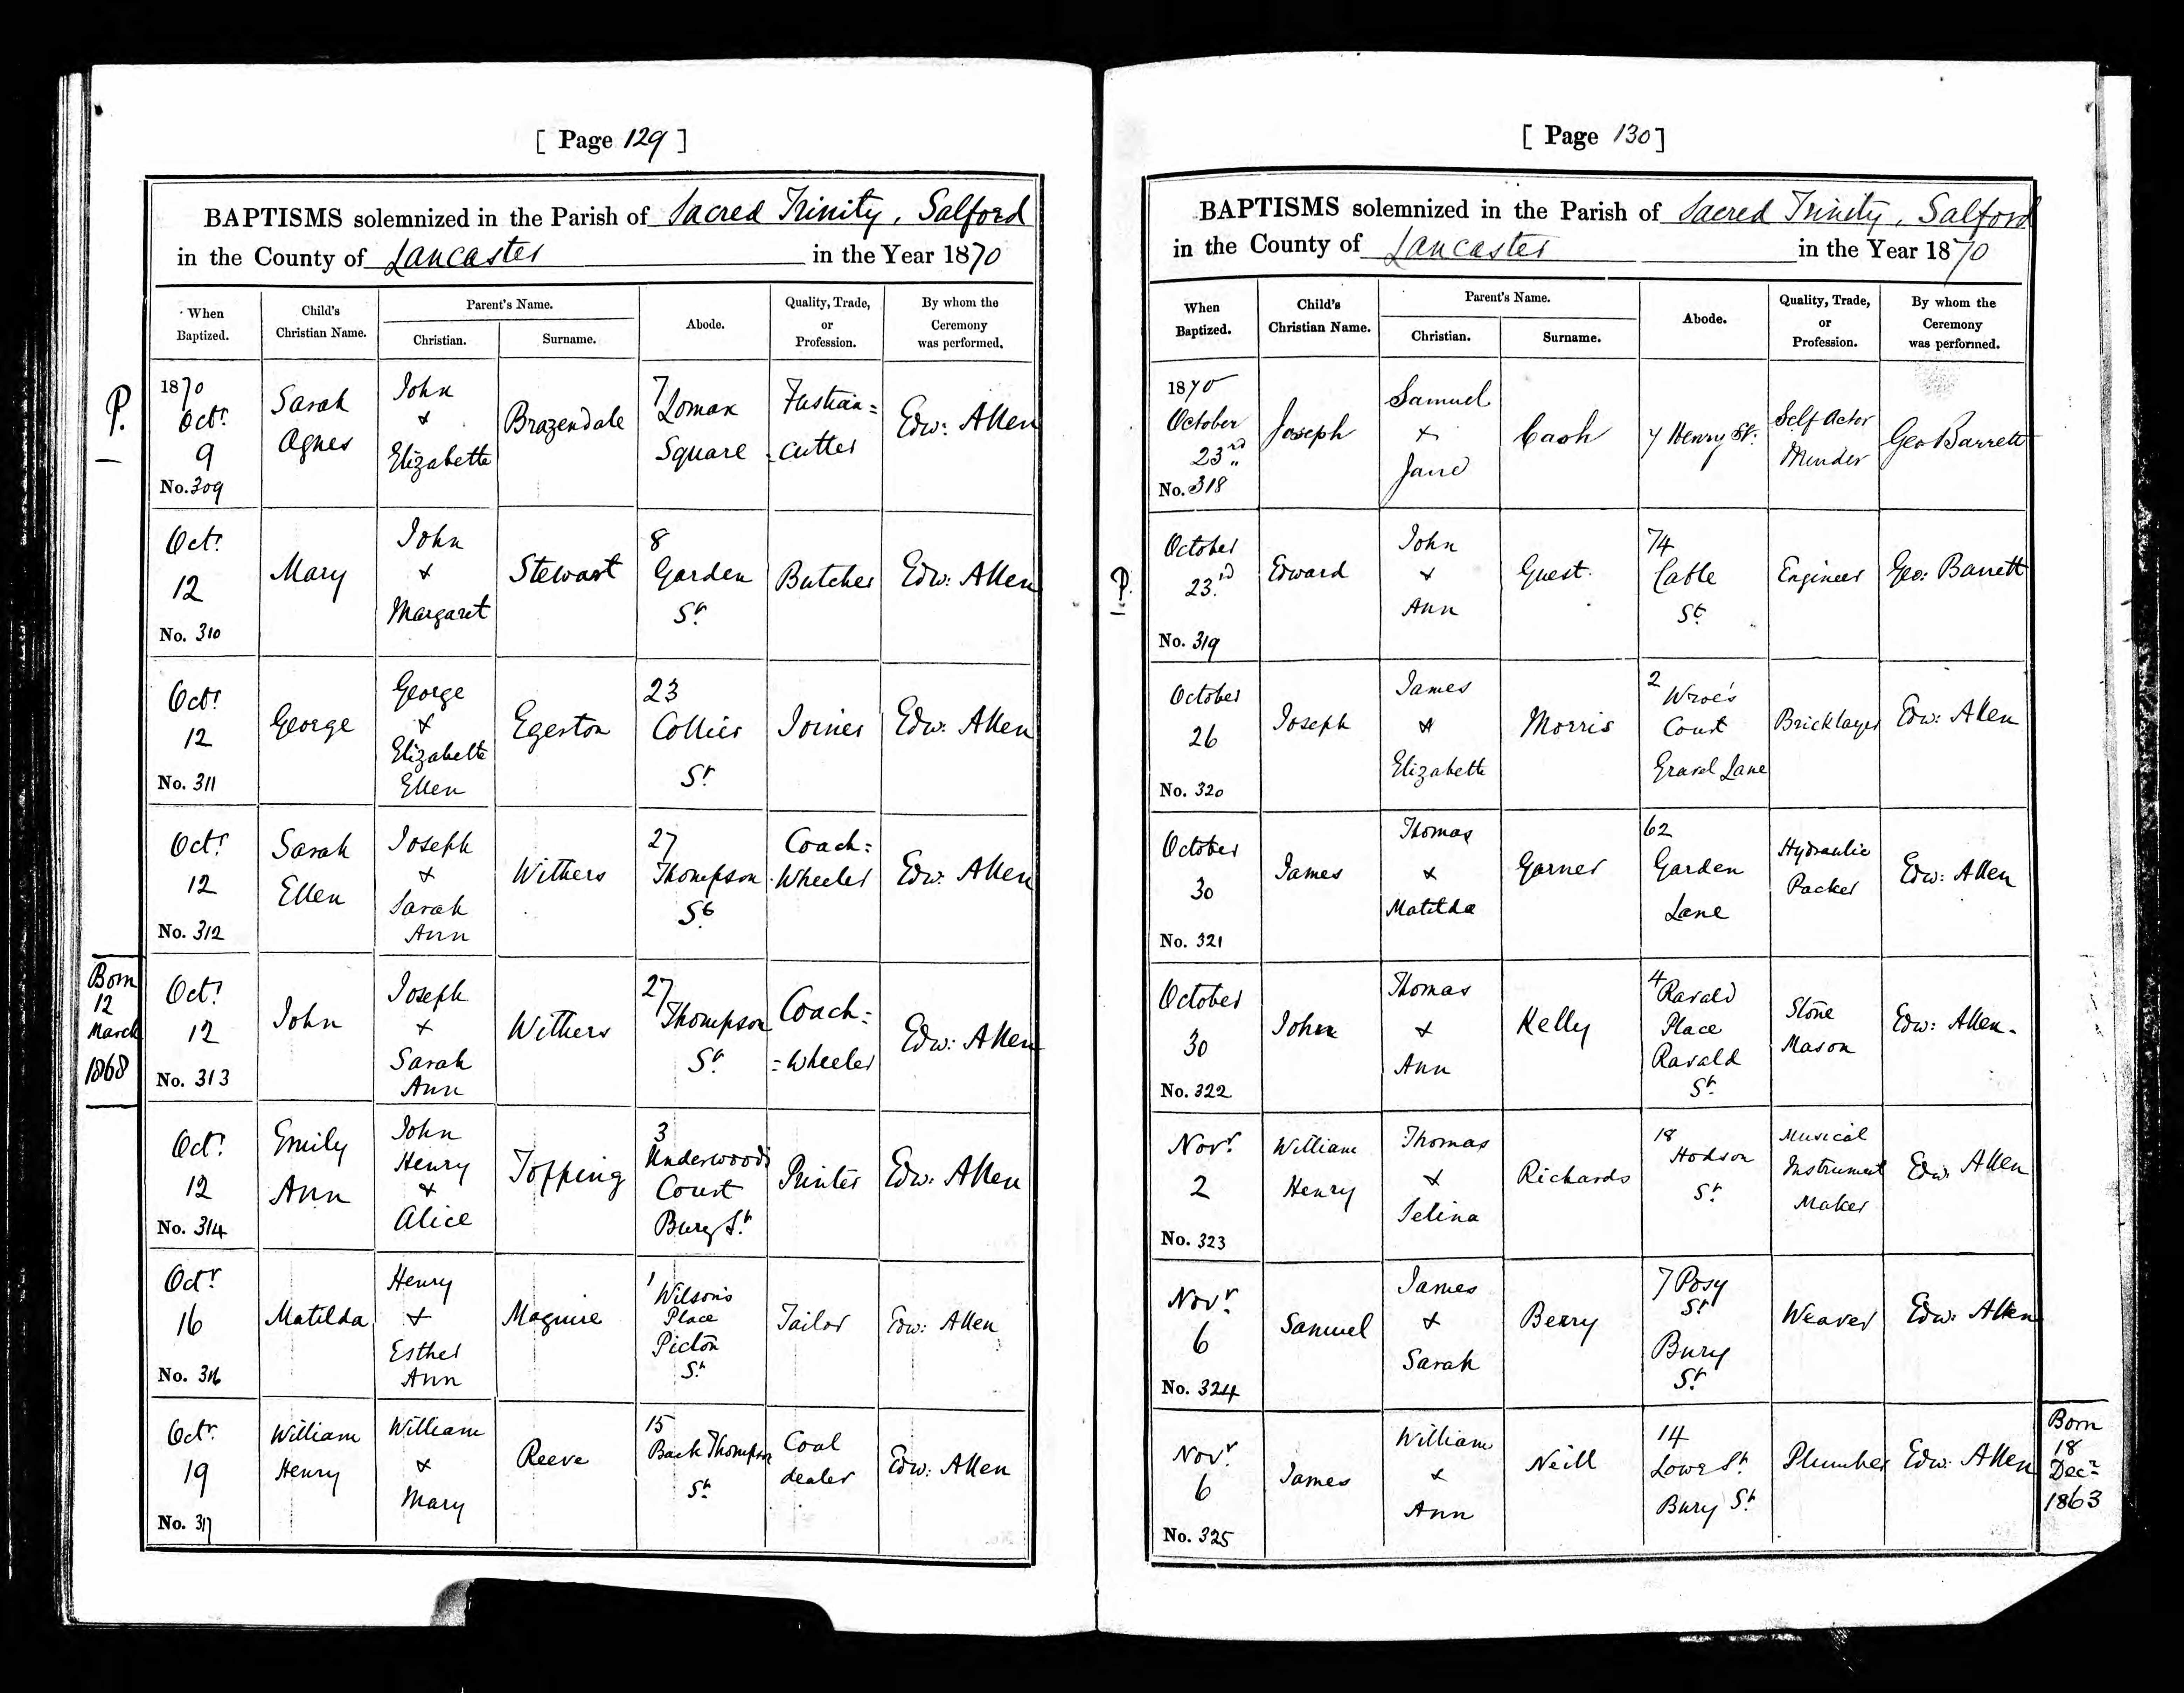 [ Page 129 ]
BAPTISMS solemnized in the Parish of Sacred Trinity, Salford
in the County of Lancaster in the Year 1870
When Baptized.
Child's Christian Name.
Parent's Name.
Christian.
Surname.
Abode.
Quality, Trade, or Profession.
By whom the Ceremony was performed.
P.
1870 Octr. 9 No. 309
Sarah Agnes
John & Elizabeth
Brazendale
7 Lomax Square
Fustian = Cutter
Edw: Allen
Octr. 12 No. 310
Mary
John & Margaret
Stewart
8 Garden St.
Butcher
Edw: Allen
Octr. 12 No. 311
George
George & Elizabeth Ellen
Egerton
23 Collier St.
Joiner
Edw: Allen
Octr. 12 No. 312
Sarah Ellen
Joseph & Sarah Ann
Withers
27 Thompson St.
Coach = Wheeler
Edw: Allen
Born 12 March 1868
Octr. 12 No. 313
John
Joseph & Sarah Ann
Withers
27 Thompson St.
Coach = = Wheeler
Edw: Allen
Octr. 12 No. 314
Emily Ann
John Henry & Alice
Topping
3 Underwoods Court Bury St.
Printer
Edw: Allen
Octr. 16 No. 316
Matilda
Henry & Esther Ann
Maguire
1 Wilson's Place Picton St.
Tailor
Edw: Allen
Octr. 19 No. 317
William Henry
William & Mary
Reeve
15 Back Thompson St.
Coal dealer
Edw: Allen
[ Page 130 ]
BAPTISMS solemnized in the Parish of Sacred Trinity, Salford
in the County of Lancaster in the Year 1870
When Baptized.
Child's Christian Name.
Parent's Name.
Christian.
Surname.
Abode.
Quality, Trade, or Profession.
By whom the Ceremony was performed.
1870 October 23rd No. 318
Joseph
Samuel & Jane
Cash
7 Henry St.
Self Actor Minder
Geo Barrett
P.
October 23rd No. 319
Edward
John & Ann
Guest
74 Cable St.
Engineer
Geo: Barrett
October 26 No. 320
Joseph
James & Elizabeth
Morris
2 Wroe's Court Gravel Lane
Bricklayer
Edw: Allen
October 30 No. 321
James
Thomas & Matilda
Garner
62 Garden Lane
Hydraulic Packer
Edw: Allen
October 30 No. 322
John
Thomas & Ann
Kelly
4 Ravald Place Ravald St.
Stone Mason
Edw: Allen.
Novr. 2 No. 323
William Henry
Thomas & Selina
Richards
18 Hodson St.
Musical Instrument Maker
Edw: Allen
Novr. 6 No. 324
Samuel
James & Sarah
Berry
7 Posy St. Bury St.
Weaver
Edw: Allen
Novr. 6 No. 325
James
William & Ann
Neill
14 Lowe St. Bury St.
Plumber
Edw: Allen
Born 18 Decr. 1863